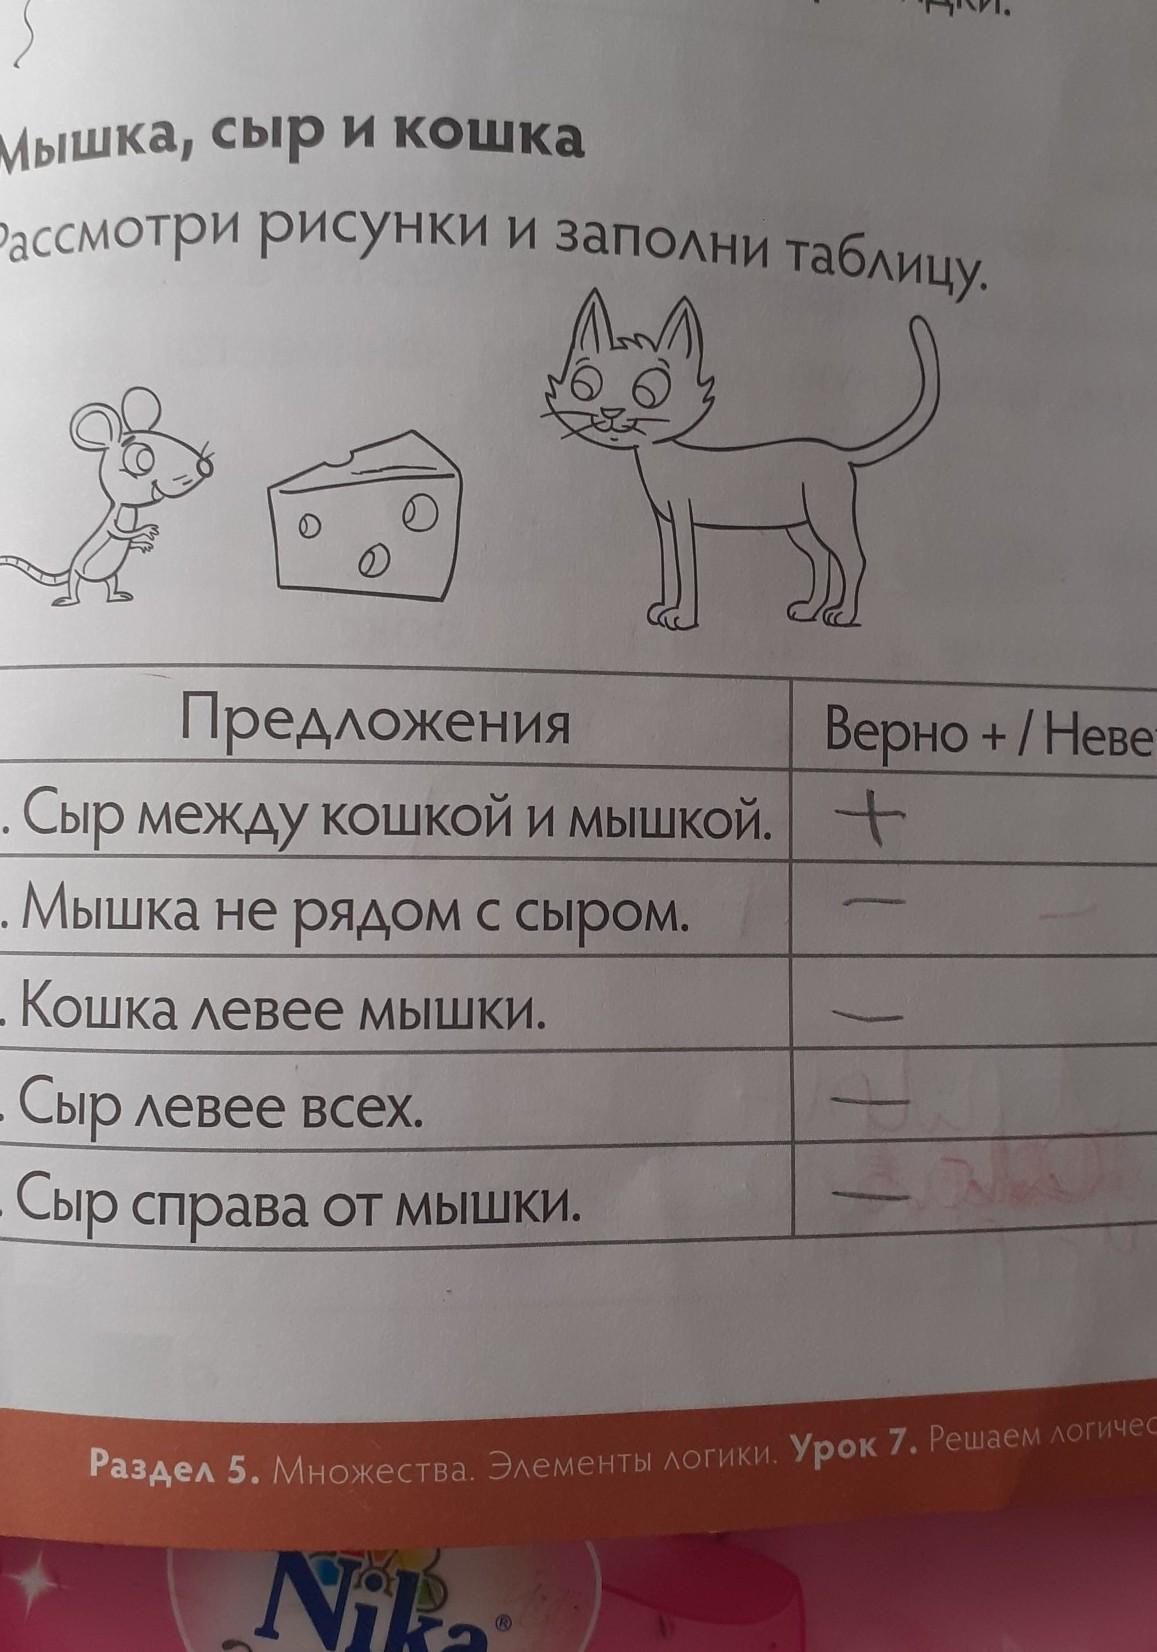 Мышка, сыр и кошка
Рассмотри рисунки и заполни таблицу.
Предложения Верно + / Неве
. Сыр между кошкой и мышкой. +
. Мышка не рядом с сыром. —
. Кошка левее мышки. —
. Сыр левее всех. —
. Сыр справа от мышки. —
Раздел 5. Множества. Элементы логики. Урок 7. Решаем логичес
Nika®